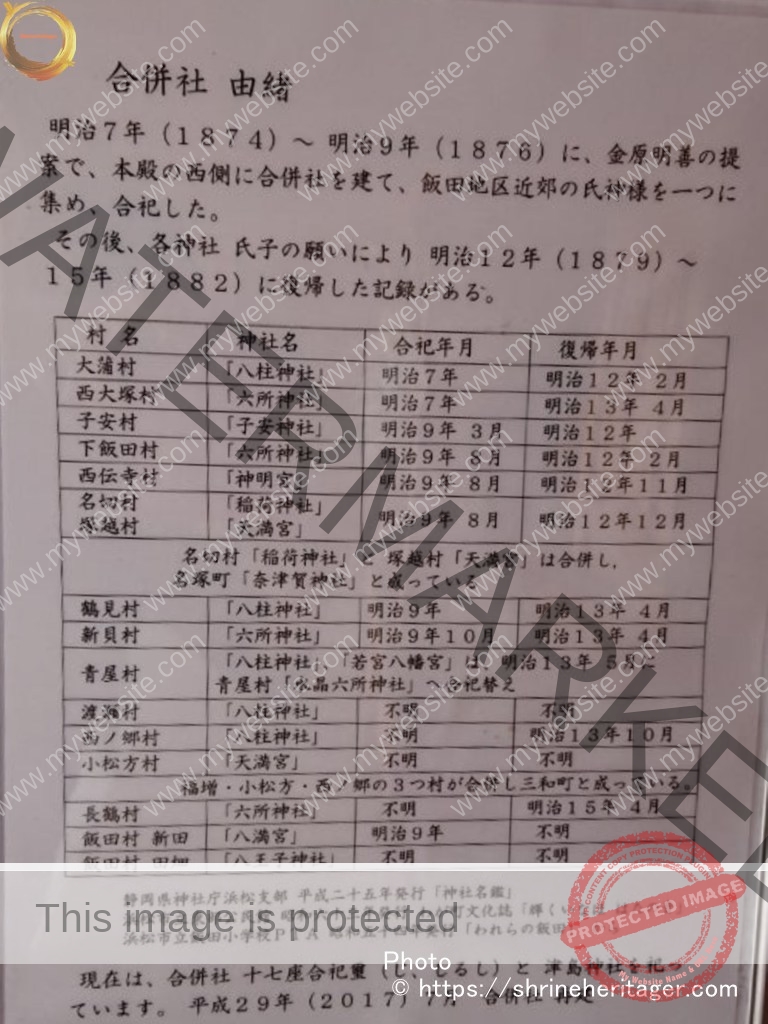 合併社 由緒
明治7年(1874)〜 明治9年(1876)に、金原明善の提
案で、本殿の西側に合併社を建て、飯田地区近郊の氏神様を一つに
集め、合祀した。
その後、各神社 氏子の願いにより 明治12年(1879)〜
15年(1882)に復帰した記録がある。
村 名 神社名 合祀年月 復帰年月
大蒲村 「八柱神社」 明治7年 明治12年 2月
西大塚村 「六所神社」 明治7年 明治13年 4月
子安村 「子安神社」 明治9年 3月 明治12年
下飯田村 「六所神社」 明治9年 8月 明治12年 2月
西伝寺村 「神明宮」 明治9年 8月 明治12年11月
名切村 「稲荷神社」
塚越村 「天満宮」 明治9年 8月 明治12年12月
名切村「稲荷神社」と 塚越村「天満宮」は合併し、
名塚町「奈津賀神社」と成っている
鶴見村 「八柱神社」 明治9年 明治13年 4月
新貝村 「六所神社」 明治9年10月 明治13年 4月
青屋村 「八柱神社」、「若宮八幡宮」は、明治13年 5月に
青屋村「水晶六所神社」へ合祀替え
渡瀬村 「八柱神社」 不明 不明
西ノ郷村 「八柱神社」 不明 明治13年10月
小松方村 「天満宮」 不明 不明
福増・小松方・西ノ郷の3つ村が合併し三和町と成っている。
長鶴村 「六所神社」 不明 明治15年 4月
飯田村 新田 「八満宮」 明治9年 不明
飯田村 「八王子神社」 不明 不明
静岡県神社庁浜松支部 平成二十五年発行「神社名鑑」
文化誌「輝く
浜松市立飯田小学校PTA 発行「われらの飯田
現在は、合併社 十七座合祀璽(し、しるし)と 津島神社を祀っ
ています。 平成29年(2017)7月 合併社
WATERMARKED
www.mywebsite.com
This image is protected
PROTECTED IMAGE
Photo
© https://shrineheritager.com/